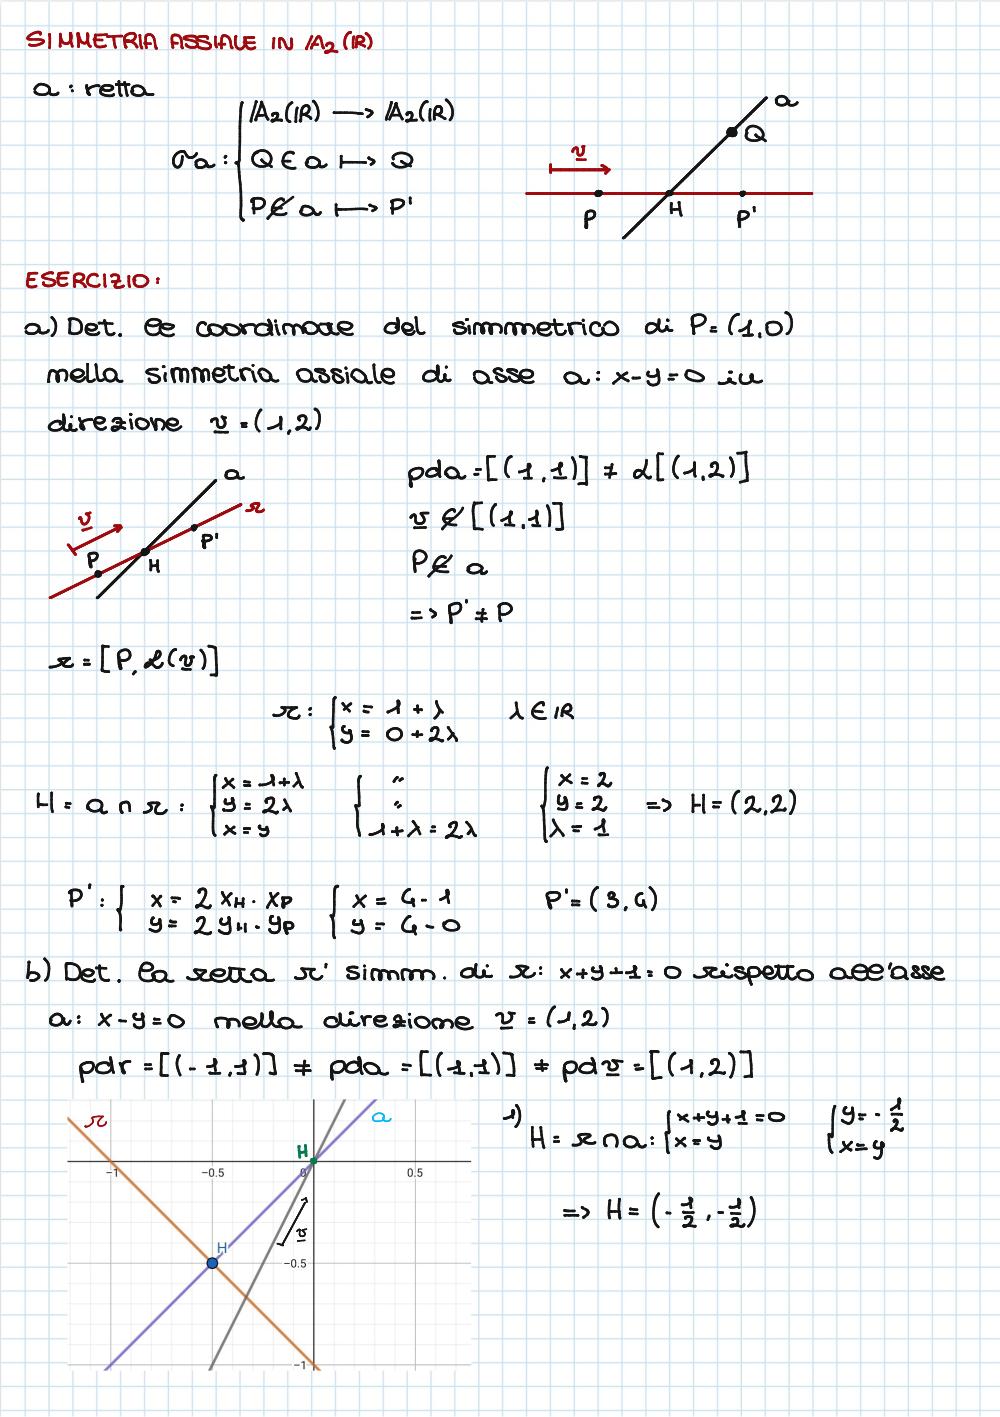 SIMMETRIA ASSIALE IN A₂(ℝ)
a : retta
σa : { A₂(ℝ) ⟶ A₂(ℝ)
Q ∈ a ⟼ Q
P ∉ a ⟼ P'
a
Q
v
P
H
P'
ESERCIZIO:
a) Det. le coordinate del simmetrico di P=(1,0)
nella simmetria assiale di asse a: x-y=0 in
direzione v=(1,2)
a
r
v
P
H
P'
pda=[(1,1)] ≠ L[(1,2)]
v ∉ [(1,1)]
P ∉ a
=> P' ≠ P
r=[P, L(v)]
r: { x = 1+λ λ ∈ ℝ
y = 0+2λ
H = a ∩ r : { x=1+λ { " { x=2
y=2λ " y=2 => H=(2,2)
x=y 1+λ=2λ λ=1
P': { x= 2xH - xP { x= 4-1 P'=(3,4)
y= 2yH - yP y= 4-0
b) Det. la retta r' simm. di r: x+y+1=0 rispetto all'asse
a: x-y=0 nella direzione v=(1,2)
pdr=[(-1,1)] ≠ pda=[(1,1)] ≠ pdv=[(1,2)]
r
a
H
-1
-0.5
0
0.5
v
H
-0.5
-1
1) H=r∩a: { x+y+1=0 { y=-1/2
x=y x=y
=> H=(-1/2,-1/2)